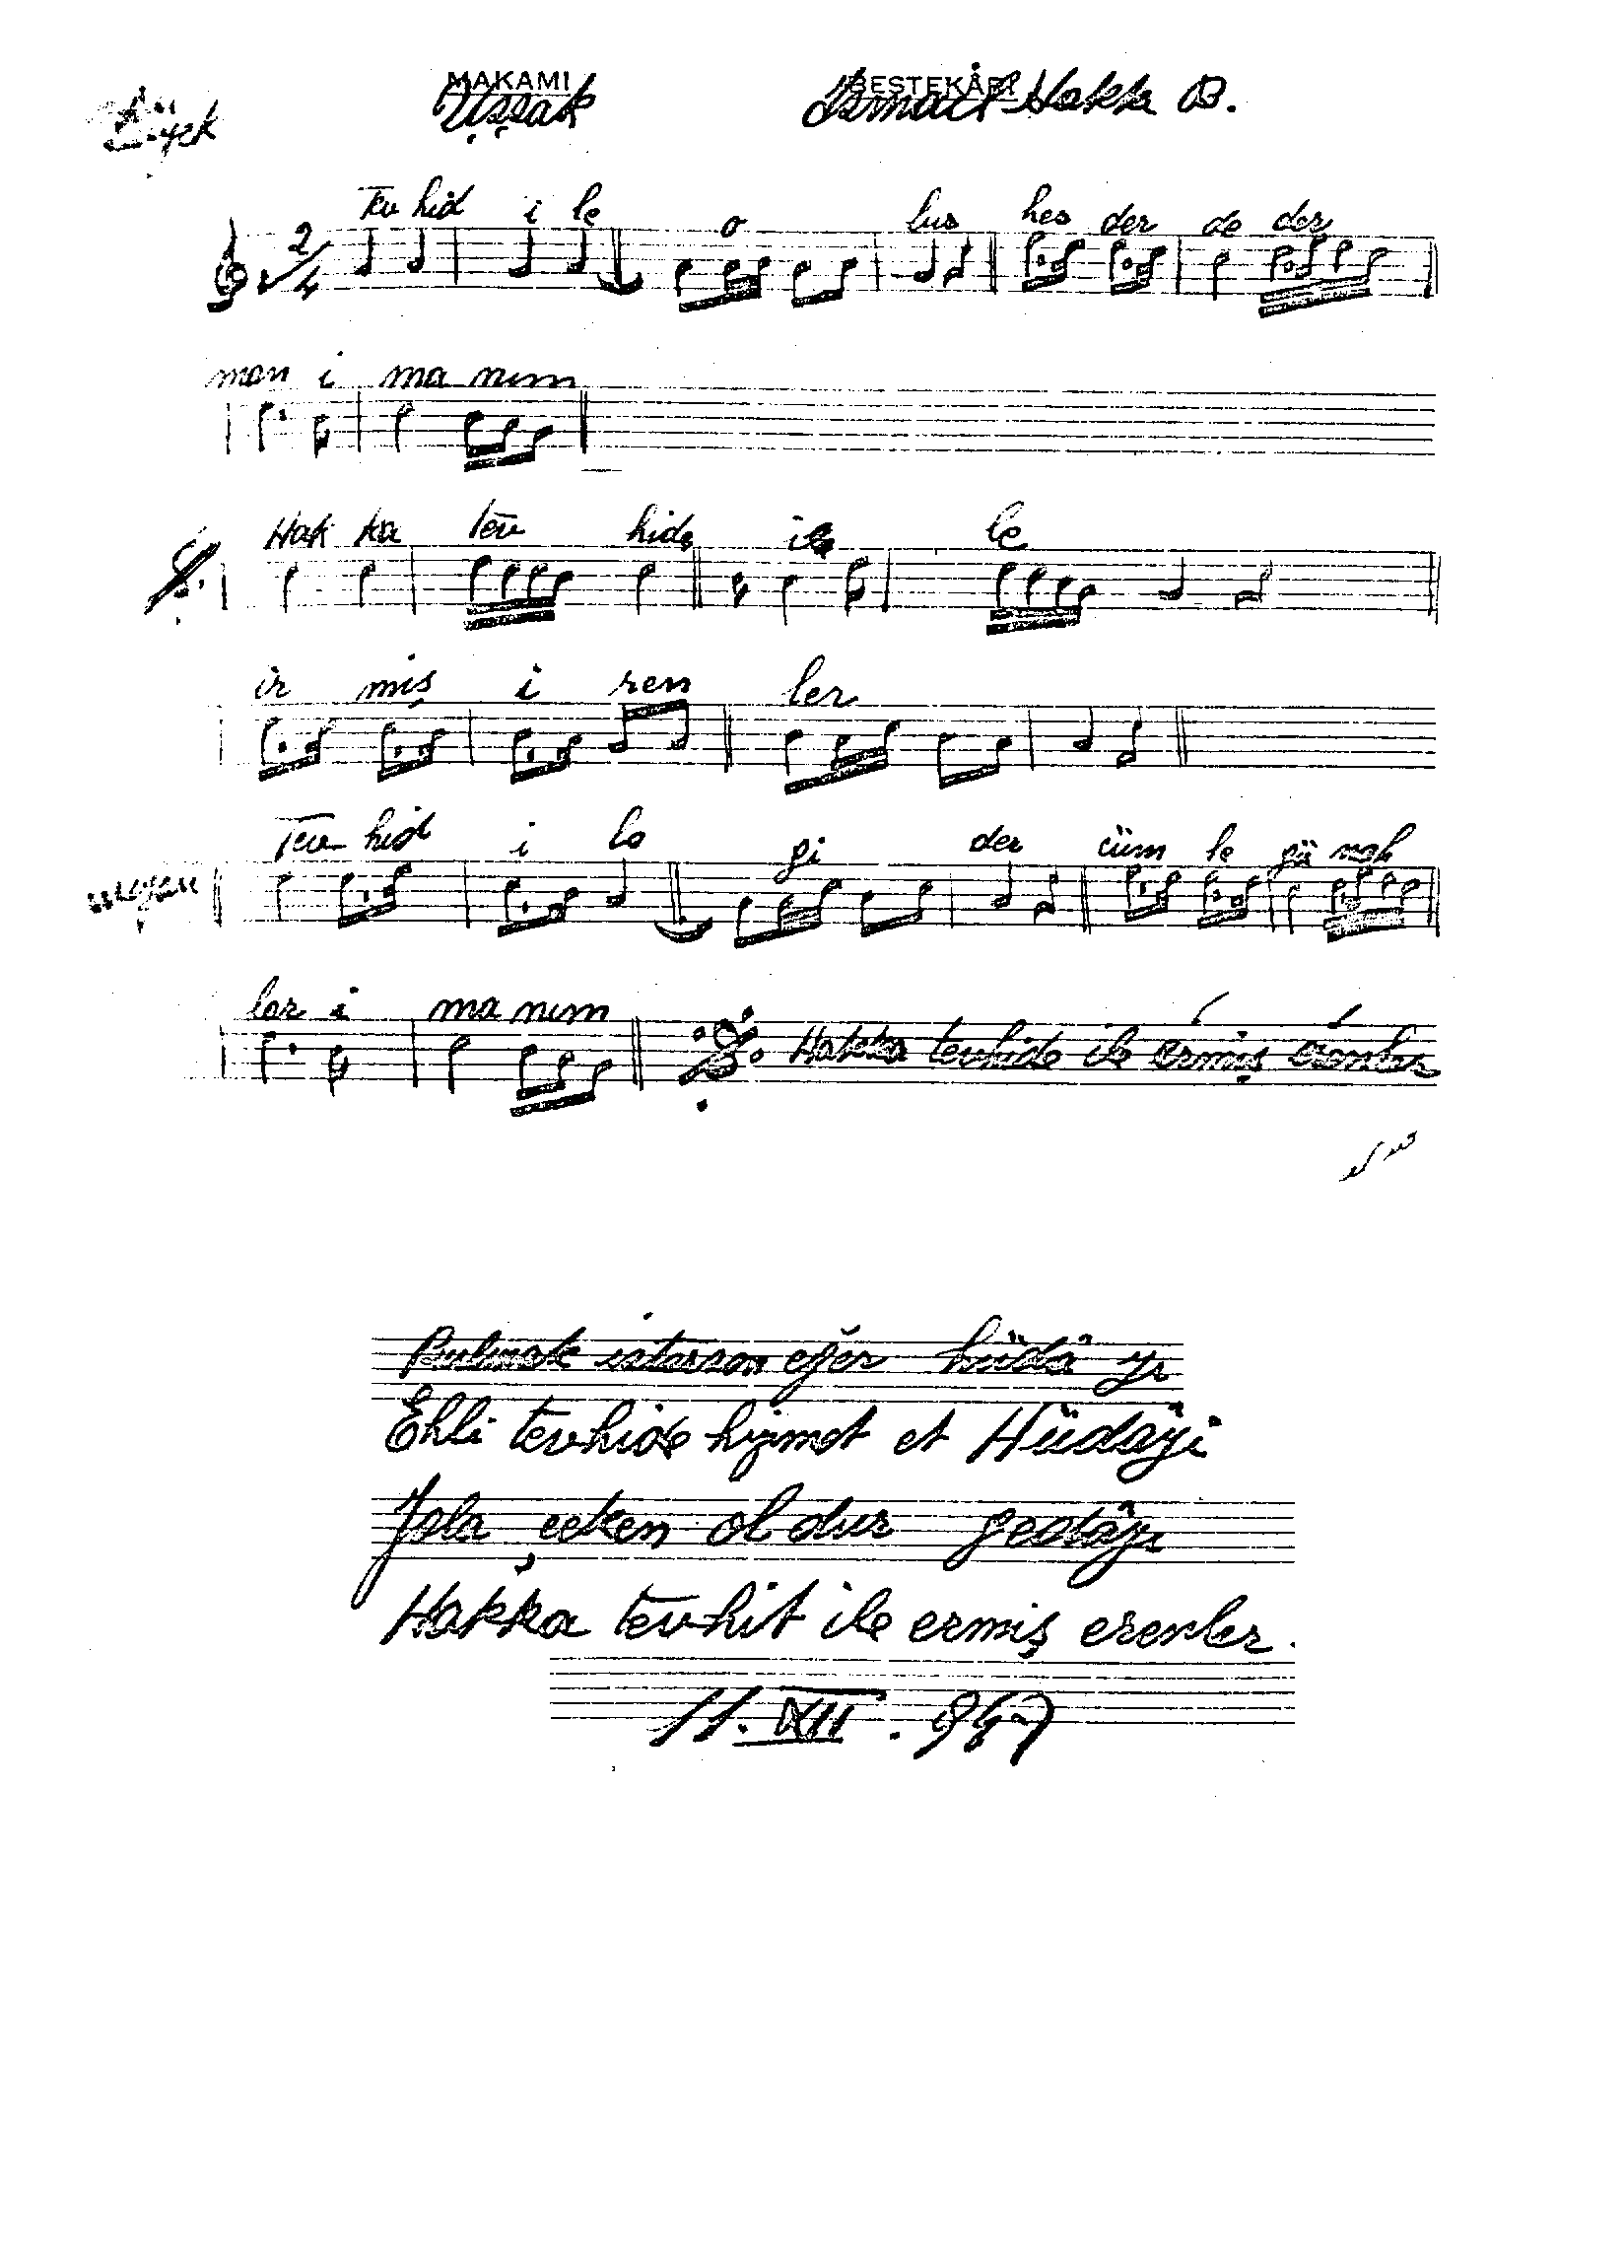 MAKAMI BESTEKÂRI
Düyek Uşşak İsmail Hakkı B.
2/4 Tev hid i le o lus hes der de der
man i ma nım
Hak ka tev hide ile le
ir miş i ren ler
Tev hid i le gi der cüm le gü nah
meyan
lar i ma nım Hakka tevhide ile ermiş erenler
Bulmak istersen eğer hüdâ yı
Ehli tevhide hizmet et Hüdâyi
çeken ol dur gedâyı
Hakka tevhit ile ermiş erenler.
11. XII. 947